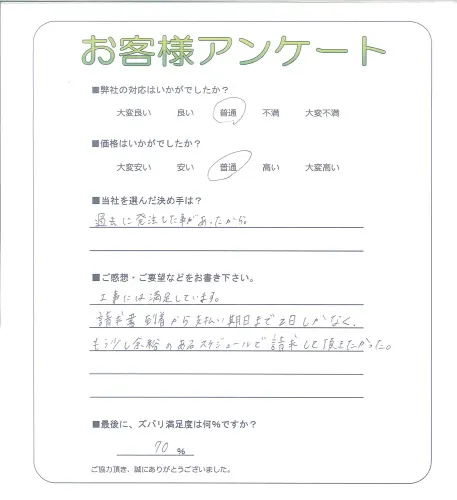 お客様アンケート
■弊社の対応はいかがでしたか？
大変良い 良い 普通 不満 大変不満
■価格はいかがでしたか？
大変安い 安い 普通 高い 大変高い
■当社を選んだ決め手は？
過去に発注した事があったから。
■ご感想・ご要望などをお書き下さい。
工事には満足しています。
請求書到着から支払い期日まで2日しかなく、
もう少し余裕のあるスケジュールで請求して頂きたかった。
■最後に、ズバリ満足度は何%ですか？
70 %
ご協力頂き、誠にありがとうございました。